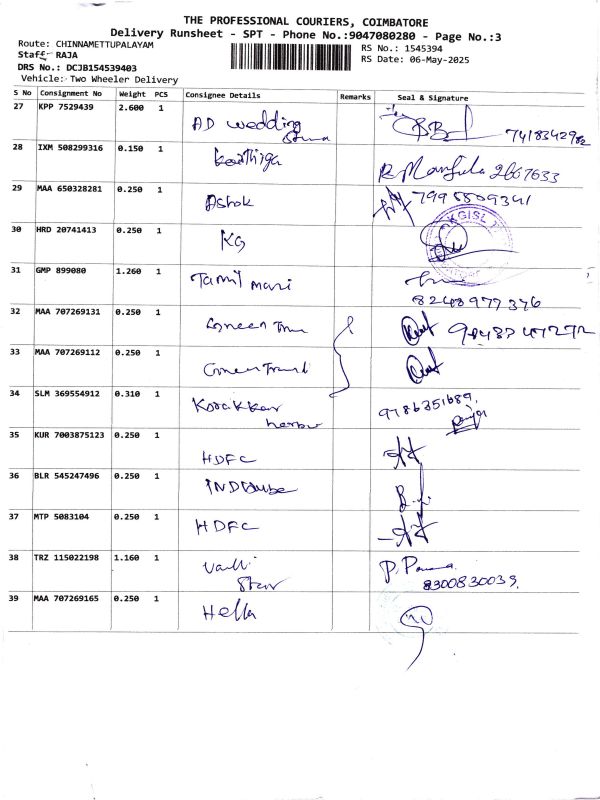 THE PROFESSIONAL COURIERS, COIMBATORE
Delivery Runsheet - SPT - Phone No.:9047080280 - Page No.:3
Route: CHINNAMETTUPALAYAM
RS No.: 1545394
Staff RAJA
RS Date: 06-May-2025
DRS No.: DCJB154539403
Vehicle: Two Wheeler Delivery
S No Consignment No Weight PCS Consignee Details Remarks Seal & Signature
27 KPP 7529439 2.600 1 AD wedding
7418342982
28 IXM 508299316 0.150 1 Keerthiga R. Manjula
29 MAA 650328281 0.250 1 Ashok 7995809341
30 HRD 20741413 0.250 1 KG KGISL
31 GMP 899080 1.260 1 Tamil mani
8248977346
32 MAA 707269131 0.250 1 Green
33 MAA 707269112 0.250 1 Green
34 SLM 369554912 0.310 1 Korakkar 9786351689
35 KUR 7003875123 0.250 1 HDFC
36 BLR 545247496 0.250 1
37 MTP 5083104 0.250 1 HDFC
38 TRZ 115022198 1.160 1 Valli
Star 8300830039
39 MAA 707269165 0.250 1 Hella